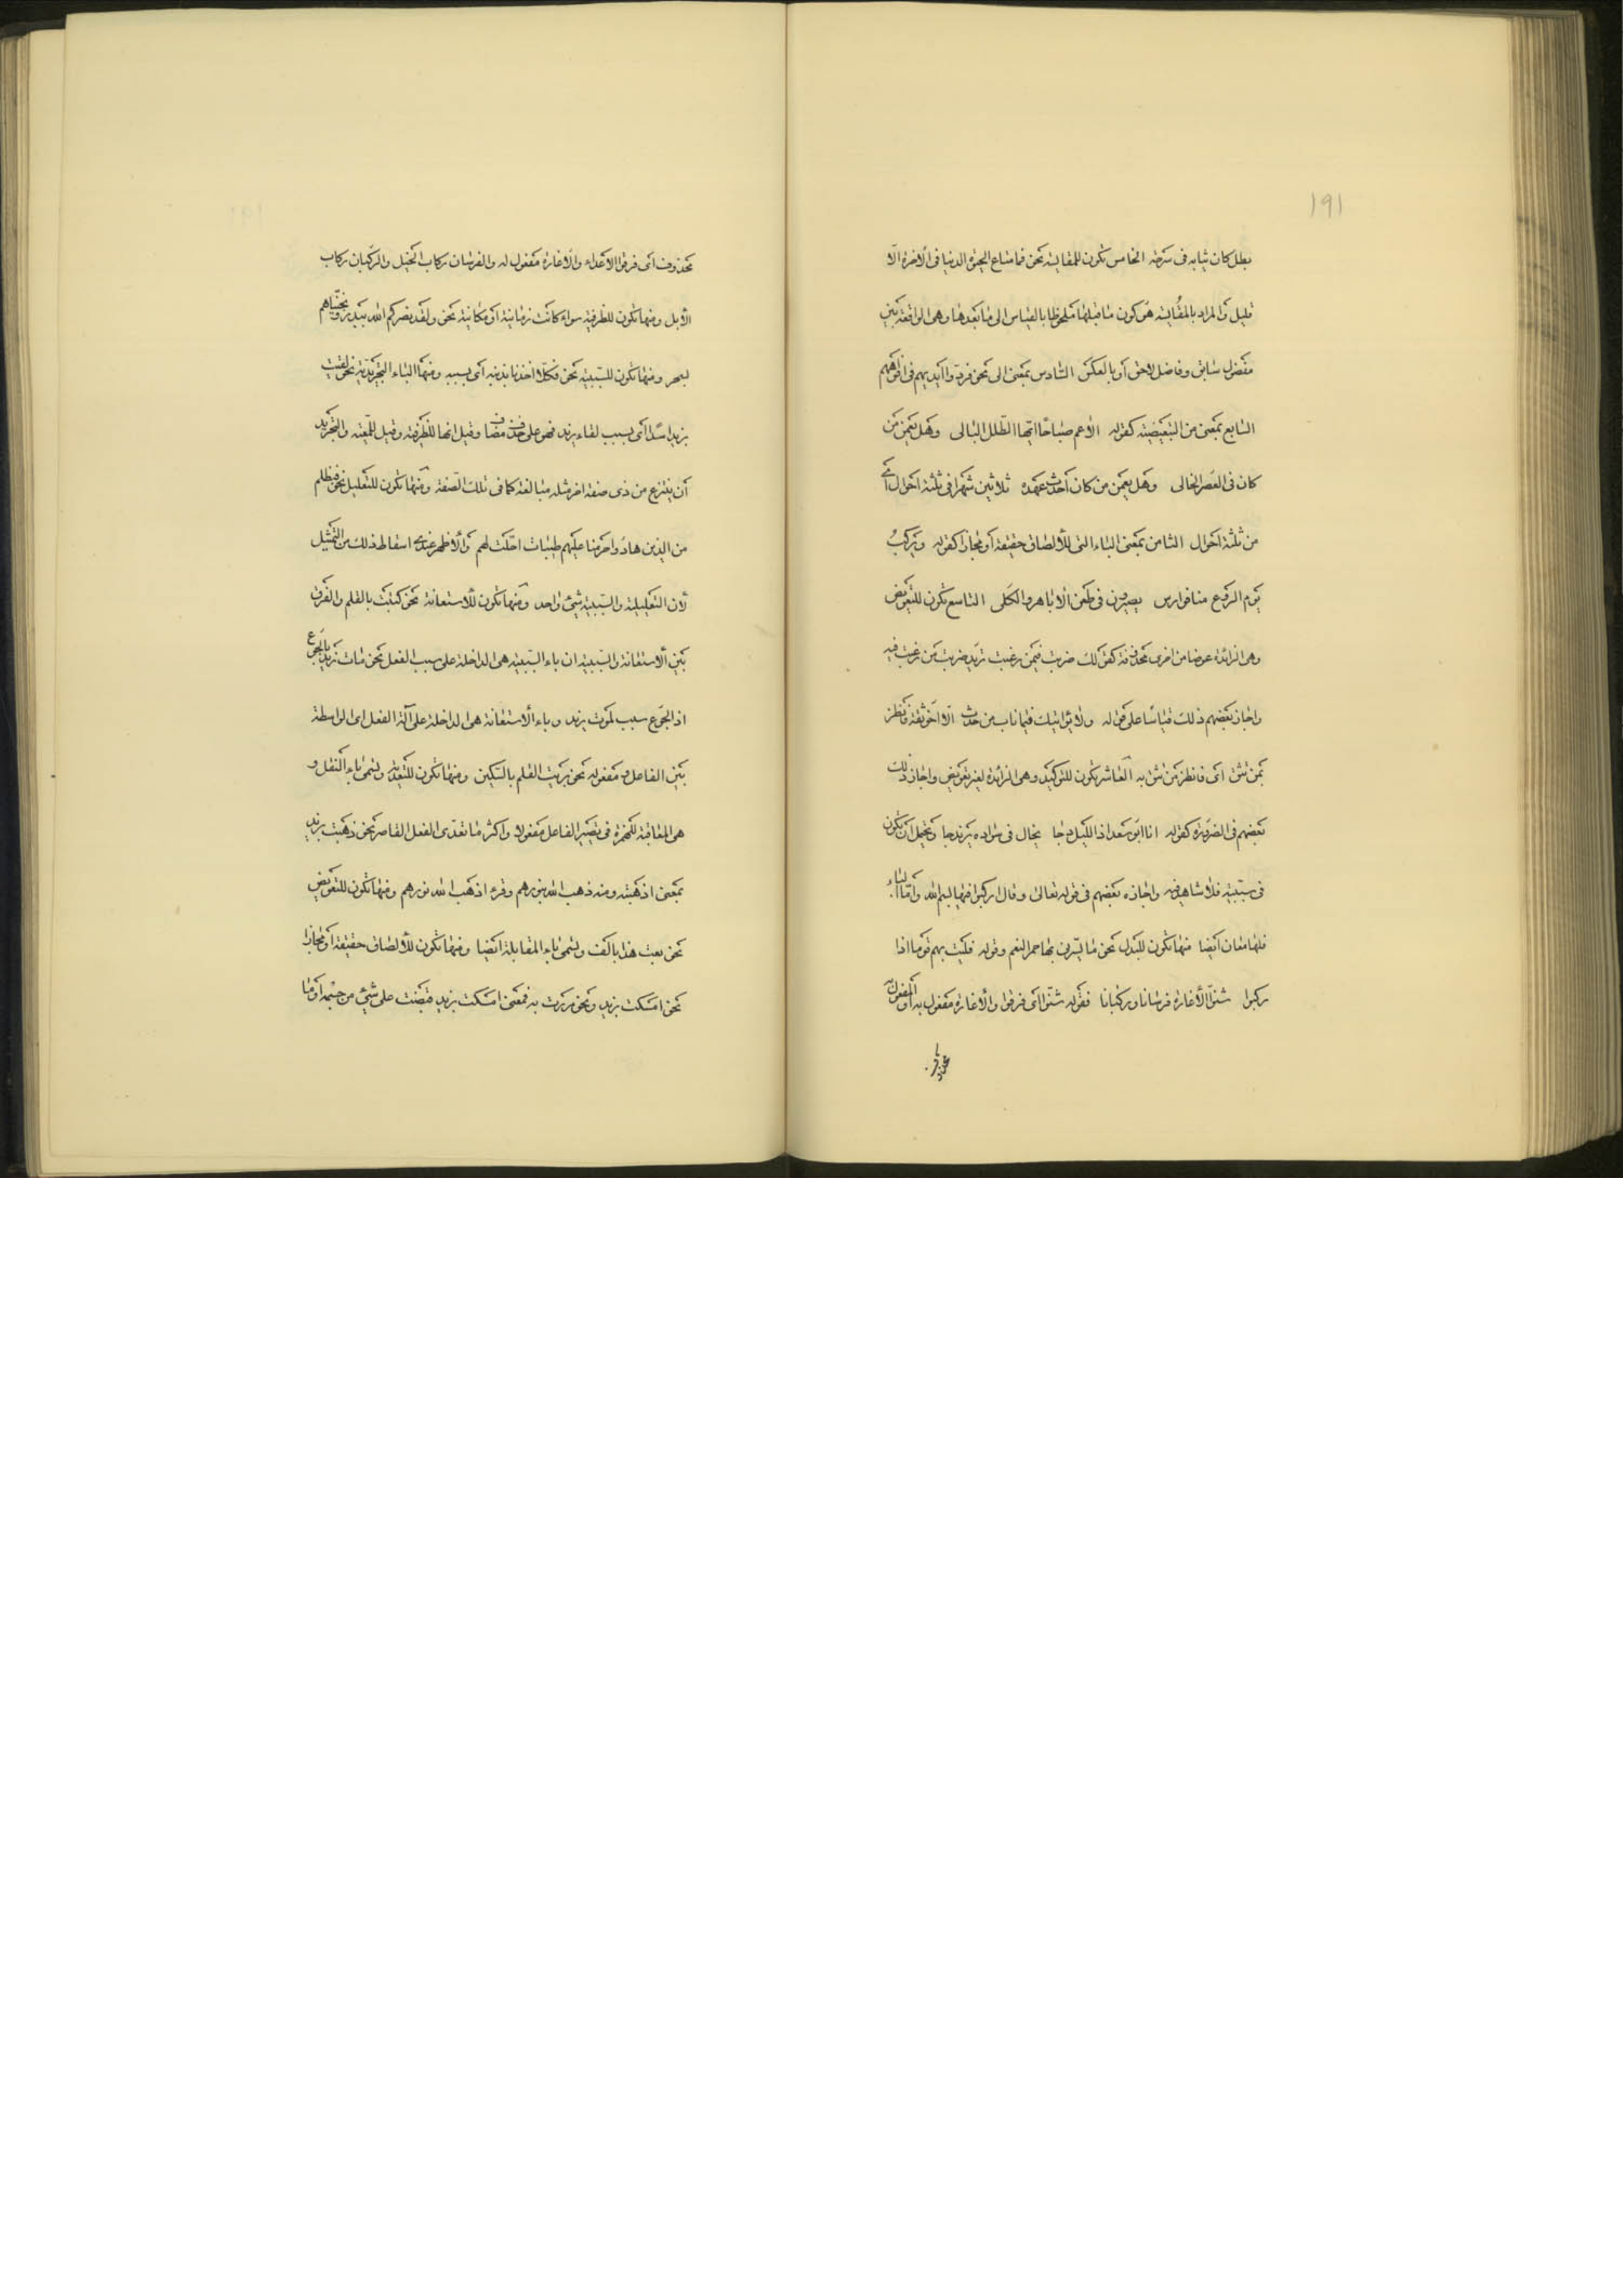 ١٩١
بطل كان ثيابه فى سرحة الخامس تكون للمقايسة نحو فما متاع الحيوة الدنيا فى الآخرة الّا
قليل والمراد بالمقايسة هو كون ما قبلها ملحوظا بالقياس الى ما بعدها وهى الواقعة بين
مفضول سابق وفاضل لاحق أو بالعكس السّادس بمعنى الى نحو فردوا أيديهم فى أفواههم
السّابع بمعنى من التبعيضية كقوله الا عم صباحا ايّها الطّلل البالى وهل يعمن من
كان فى العصر الخالى وهل يعمن من كان أحدث عهده ثلاثين شهرا فى ثلثة احوال أى
من ثلثة احوال الثامن بمعنى الباء التى للألصاق حقيقة أو مجازا كقوله ويركب
يوم الروع منا فوارس بصيرون فى طعن الاباهر والكلى التاسع تكون للتعويض
وهى الزائدة عوضا من اخرى محذوفة كقولك ضربت فيمن رغبت تريد ضربت من رغبت فيه
واجاز بعضهم ذلك قياسا على قوله ولا يؤاتيك فيما ناب من حدث الّا أخو ثقة فانظر
بمن تثق أى فانظر من تثق به العاشر تكون للتوكيد وهى الزائدة لغير تعويض واجاز ذلك
بعضهم فى الضرورة كقوله انا ابو سعد اذا الليل دجا يخال فى سواده يرندجا ويحتمل ان تكون
فى سببية فلا شاهد فيه واجازه بعضهم فى قوله تعالى وقال اركبوا فيها بسم الله وأمّا الباء
فلها معان أيضا فمنها تكون للبدل نحو ما يسرنى بها حمر النعم وقوله فليت بهم قوما اذا
ركبوا شنّوا الأغارة فرسانا وركبانا فقوله شنّوا أى فرقوا والأغارة مفعول به أو المفعول به
محذوف أى فرقوا الأعداء والأغارة مفعول له والفرسان ركاب الخيل والرّكبان ركاب
الأبل ومنها تكون للظرفية سواء كانت زمانية أو مكانية نحو ولقد نصركم الله ببدر ونجّيناهم
بسحر ومنها تكون للسّببية نحو فكلا اخذنا بذنبه أى بسببه ومنها الباء التجريدية نحو لقيت
بزيد اسدا أى بسبب لقاء زيد فهو على حذف مضاف وقيل انها للظرفية وقيل للمعيّة والتجريد
أن ينتزع من ذى صفة اخر مثله مبالغة كما فى تلك الصّفة ومنها تكون للتعليل نحو فبظلم
من الذين هادوا حرمنا عليهم طيبات احلّت لهم والأظهر عندى اسقاط ذلك من التّمثيل
لأن التعليلية والسّببية شئ واحد ومنها تكون للأستعانة نحو كتبت بالقلم والفرق
بين الأستعانة والسّببية ان باء السّببية هى الداخلة على سبب الفعل نحو مات زيد بالجوع
اذ الجوع سبب لموت زيد وباء الأستعانة هى الداخلة على آلة الفعل اى الواسطة
بين الفاعل ومفعوله نحو بريت القلم بالسّكين ومنها تكون للتّعدية وتسمى باء النقل و
هى المعاقبة للهمزة فى تصيير الفاعل مفعولا وأكثر ما تعدّى الفعل القاصر نحو ذهبت بزيد
بمعنى اذهبته ومنه ذهب الله بنورهم وقرء اذهب الله نورهم ومنها تكون للتعويض
نحو بعت هذا بالف وتسمى باء المقابلة ايضا ومنها تكون للألصاق حقيقة أو مجازا
نحو امسكت بزيد ونحو مررت به فمعنى امسكت بزيد قبضت على شئ من جسمه أو ما